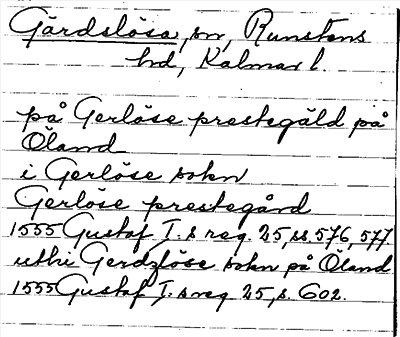 Gärdslösa, sn, Runstens
hd, Kalmar l.
på Gerløse prestegäld på
Öland
i Gerløse sokn
Gerløse prestegård
1555 Gustaf I:s reg. 25, ss. 576, 577.
uthi Gerdzløse sokn på Öland
1555 Gustaf I:s reg 25, s. 602.